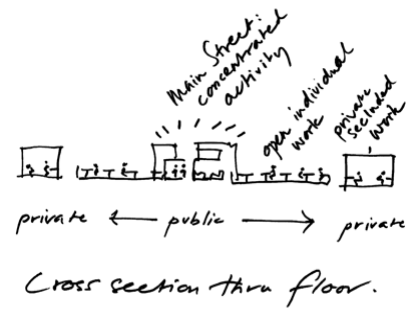 Main Street:
concentrated
activity
open individual
work
private
secluded
work
private ← public → private
Cross section thru floor.